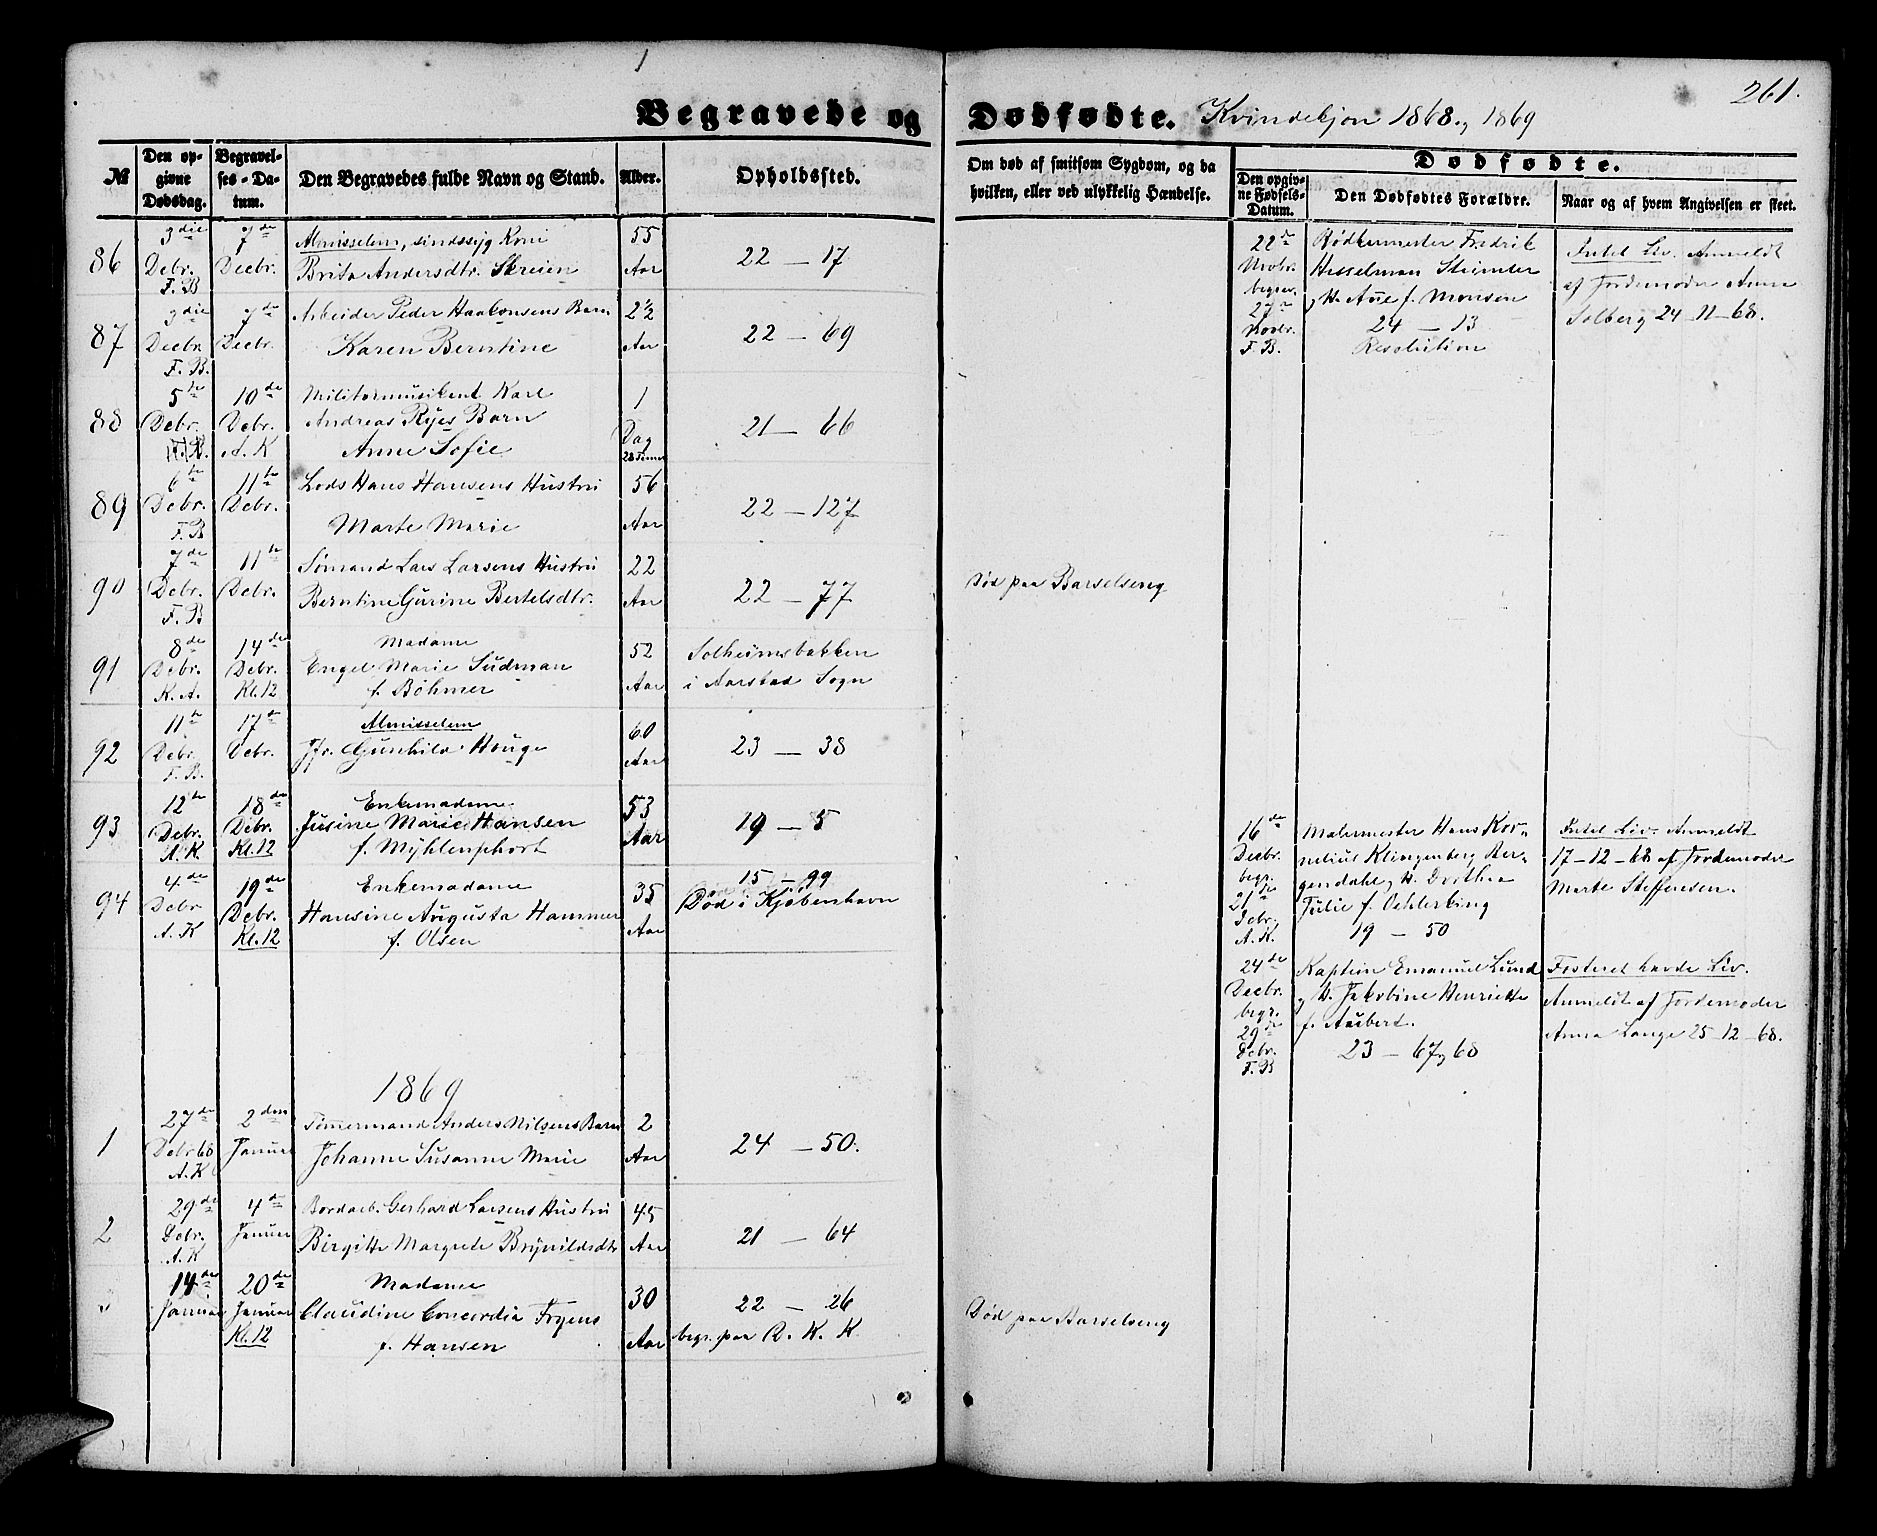 261.
Begravede og Dødfødte. Kvindekjøn 1868 og 1869
№
Den opgivne Dødsdag.
Begravelses-Datum.
Den Begravedes fulde Navn og Stand.
Alder.
Opholdssted.
Om død af smitsom Sygdom, og da hvilken, eller ved ulykkelig Hændelse.
Dødfødte.
Den opgivne Fødsels-Datum.
Den Dødfødtes Forældre.
Naar og af hvem Angivelsen er skeet.
86
3die Debr. F. B
7de Decbr.
Almisselem, sindssyg Kone
Brita Andersdtr. Skreien
55 Aar
22 — 17
87
3die Decbr. F. B.
7de Decbr.
Arbeider Peder Haakonsens Barn
Karen Berntine
2½ Aar
22 — 69
88
5te Debr.
10de Debr. A. K
Militærmusikent Karl
Andreas Ryes Barn
Anne Sofie
1 Dag
21 — 66
89
6te Debr. F. B
11te Debr.
Lods Hans Hansens Hustru
Marte Marie
56 Aar
22 — 127
90
7de Debr. F. B
11te Debr.
Sømand Lars Larsens Hustru
Berntine Gurine Bertelsdtr.
22 Aar
22 — 77
Død paa Barselseng
91
8de Debr. K. A.
14de Debr. Kl. 12
Madame
Engel Marie Sudman
f. Bøhmer
52 Aar
Solheimsbakken
i Aarstad Sogn
92
11te Debr. F. B.
17de Debr.
Almisselem
Jfr. Gunhild Houge
60 Aar
23 — 38
93
12te Debr. A. K.
18de Debr. Kl. 12
Enkemadame
Jusine Marie Hansen
f. Myhlenphort
53 Aar
19 — 5
94
4de Debr A. K
19de Debr. Kl. 12
Enkemadame
Hansine Augusta Hammer
f. Olsen
35 Aar
15 — 99
Død i Kjøbenhavn
1869
1
27de Debr 68 A. K
2den Januar
Tømermand Anders Nilsens Barn
Johanne Susanne Marie
2 Aar
24 — 50.
2
29de Debr. A. K
4de Januar
Bordarb. Gerhard Larsens Hustru
Birgitte Margrete Brynildsdtr
45 Aar
21 — 64
"
14de Januar
20de Januar Kl. 12
Madame
Claudine Concordia
f. Hansen
30 Aar
22 — 26
begr. paa D. K. K
Død paa Barselseng
22de Novbr. begrav. 27de Novbr. F. B.
Bødkermester Fredrik
Hesselman
og H. Ane f. Monsen
24 — 13
Resolution
Intet Liv. Anmeldt
af Jordemoder Anne
Solberg 24-11-68.
16de Decbr. begr. 21de Debr. A. K.
Malermester Hans Kor-
nelius Klingenberg Ber-
gendahl og H. Dorthea
Julie f.
19 — 50
Intet Liv. Anmeldt
17-12-68 af Jordemoder
Marte Steffensen.
24de Decbr. begr. 29de Debr. F. B
Kaptein Emanuel Lund
og H. Jakobine Henriette
f. Aubert.
23 — 67 og 68
Fosteret havde Liv.
Anmeldt af Jordemoder
Anna Lange 25-12-68.